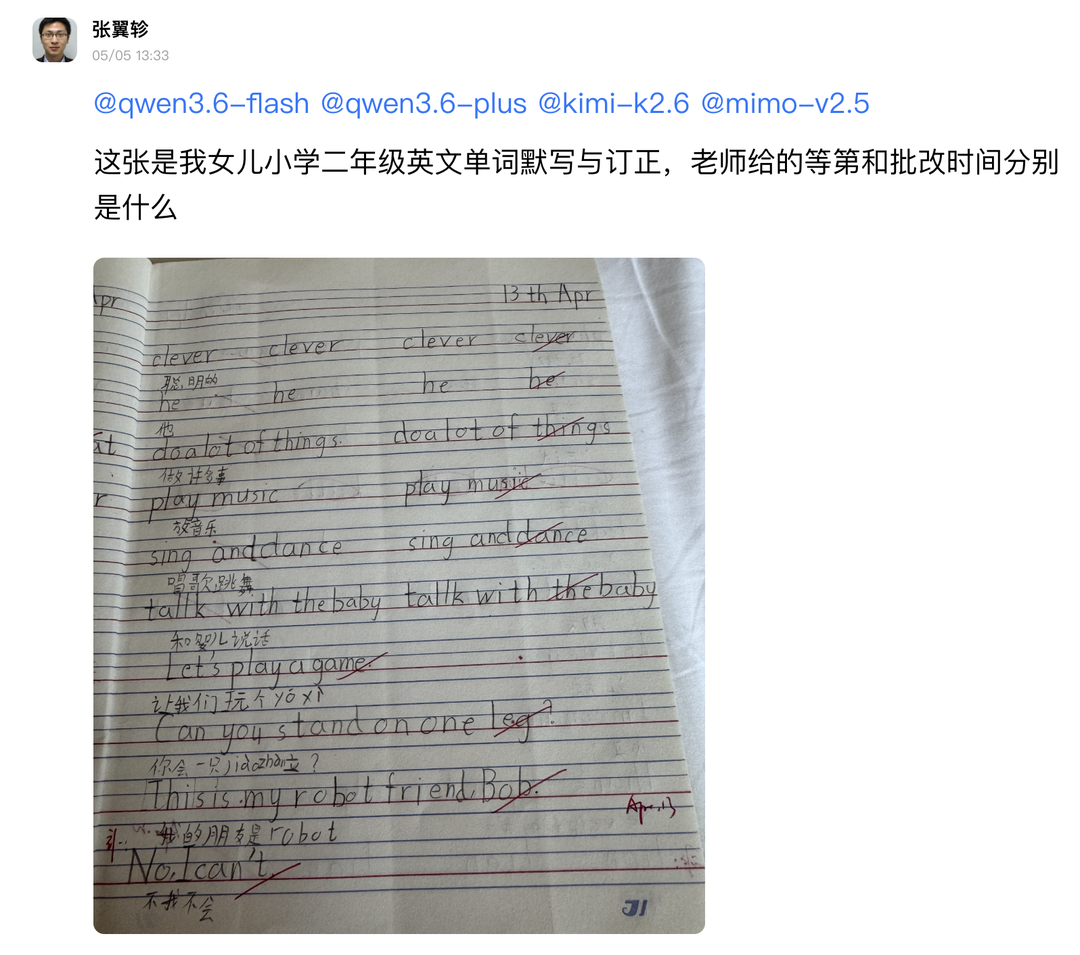 张翼轸
05/05 13:33
@qwen3.6-flash @qwen3.6-plus @kimi-k2.6 @mimo-v2.5
这张是我女儿小学二年级英文单词默写与订正，老师给的等第和批改时间分别
是什么
pr
13 th Apr
clever clever clever clever
聪明的
he he he he
他
do a lot of things. do a lot of things
做许多事
play music play music
放音乐
sing and dance sing and dance
唱歌跳舞
tallk with the baby tallk with the baby
和婴儿说话
Let's play a game.
让我们玩个yóxì
Can you stand on one leg?
你会一只jiǎozhàn立?
This is my robot friend, Bob.
Apr.13
我的朋友是robot
No, I can't.
不我不会